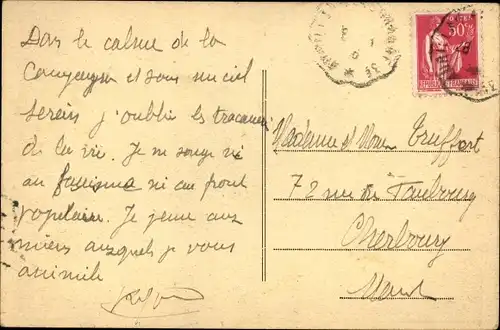 Dans le calme de la
Campagne et sous un ciel
serein j'oublie les tracasseries
de la vie. Je ne songe ni
au fascisme ni au front
populaire. Je pense aux
miens auxquels je vous
assimile
50c
POSTES
REPUBLIQUE FRANÇAISE
Madame et Truffert
72 rue du Faubourg
Cherbourg